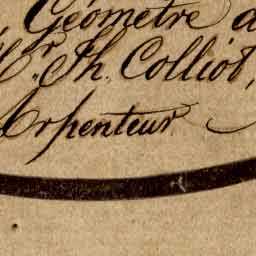 Géometre d
Mr. Th. Colliot,
Arpenteur